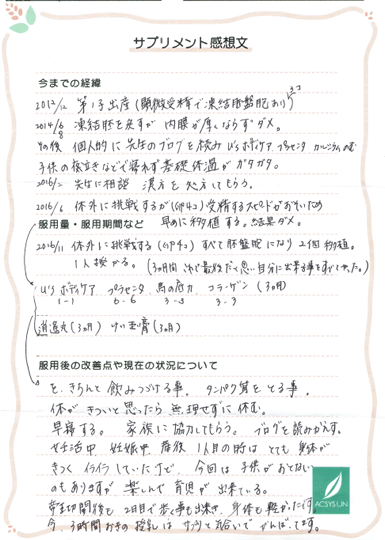 サプリメント感想文
今までの経緯
2012/12 第1子出産(顕微受精で凍結胚盤胞あり)
2014/6 凍結胚を戻すが内膜が厚くならずダメ。
8
その後 個人的に先生のブログを読み U'sボディケア プラセンタ カルシウムのむ
子供の夜泣きなどで寝れず基礎体温がガタガタ。
2016/2 先生に相談 漢方を処方してもらう。
2016/6 体外に挑戦するが 受精するスピードがおそいため
服用量・服用期間など 早めに移植する。結果ダメ。
2016/11 体外に挑戦する すべて胚盤胞になり2個移植。
1人授かる。(3ヵ月間 これで最後だと思い自分に出来る事をすべてやった。)
U'sボディケア プラセンタ 馬の底力 コラーゲン (3ヵ月)
1-1 6-6 3-3 3-3
逍遥丸(3ヵ月) (3ヵ月)
服用後の改善点や現在の状況について
を、きちんと飲みつづける事。タンパク質をとる事。
体がきついと思ったら無理せずに休む。
早寝する。 家族に協力してもらう。 ブログを読みかえす。
妊活中 妊娠中 産後 1人目の時はとても身体が
きつくイライラしていたけど、今回は子供がおとなしい
のもありますが 楽しんで育児が出来ている。
帝王切開後も2日目で歩く事も出来き、身体も軽かった
今、3時間おきの授乳は サプリと合いでがんばってます。
ACSYSUN